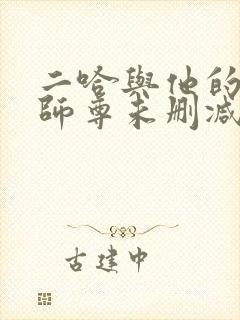 二哈與他的
師尊未刪减
古建中